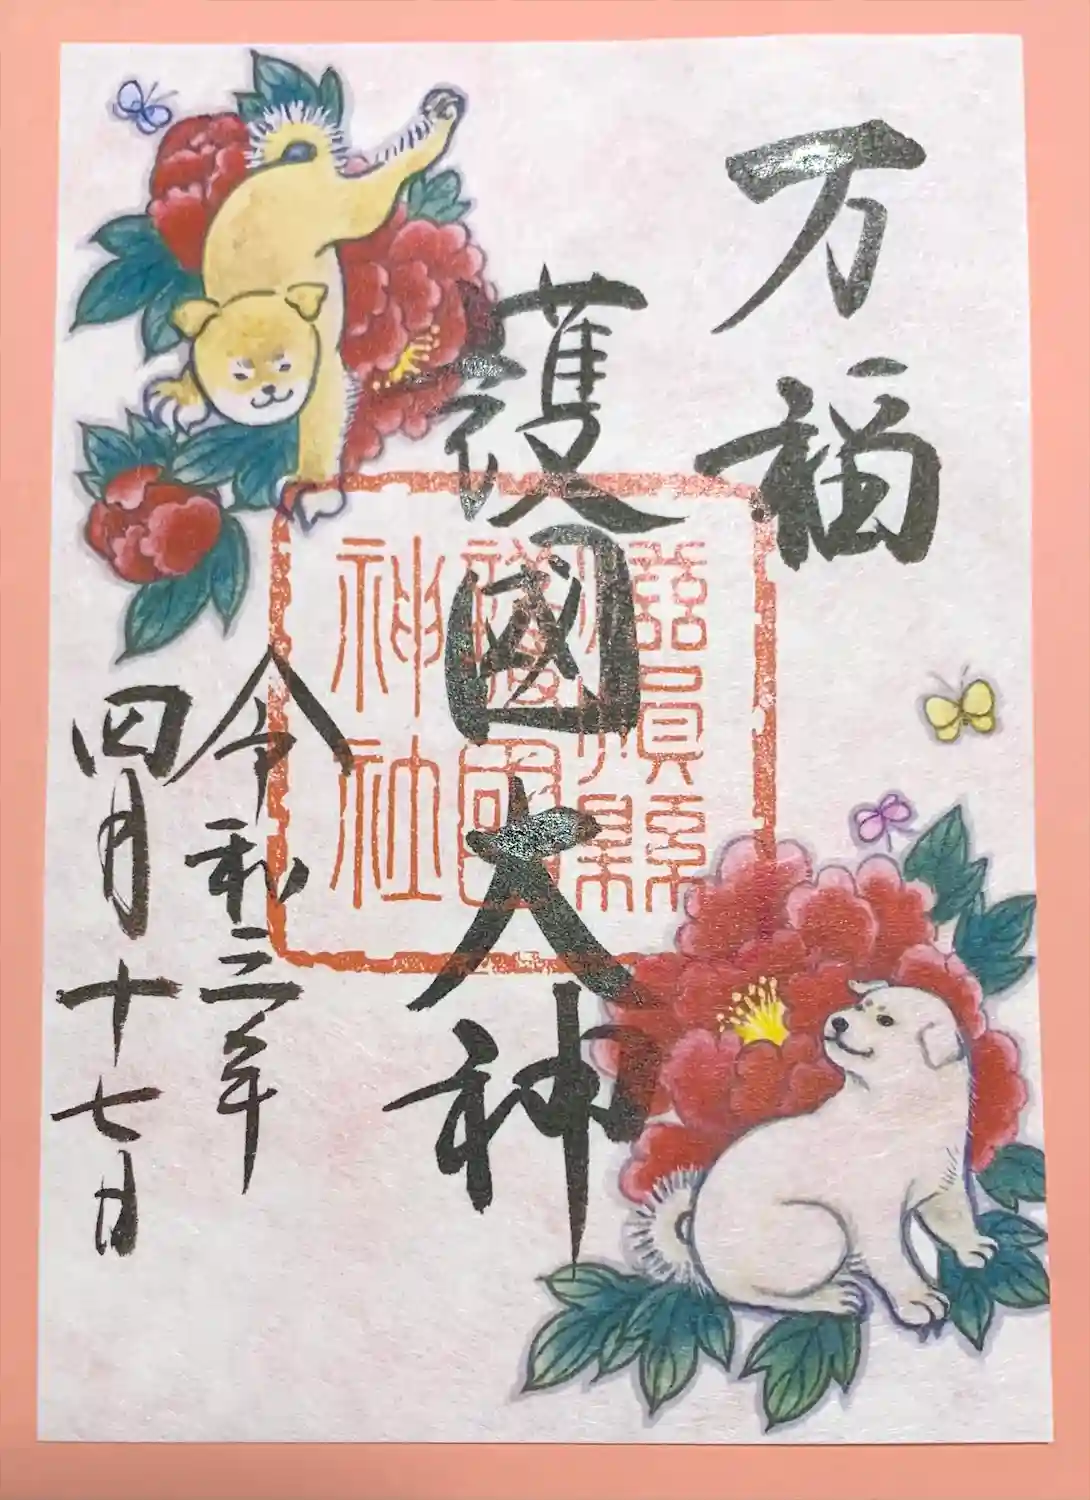 万福
護國大神
令和三年
四月十七日
滋賀縣
護國
神社